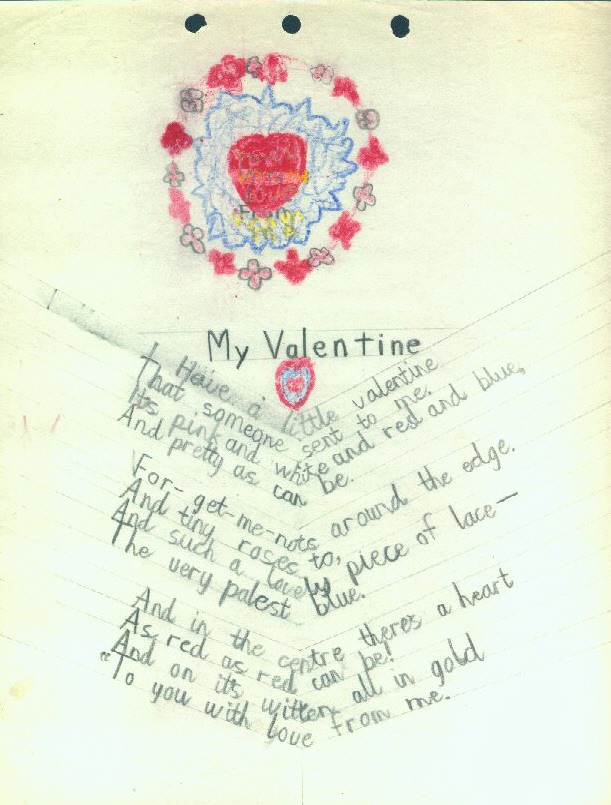 From
My Valentine
I Have a little valentine
That someone sent to me.
Its pink and white and red and blue,
And pretty as can be.
For-get-me-nots around the edge.
And tiny roses to,
And such a lovely piece of lace—
The very palest blue.
And in the centre theres a heart
As red as red can be!
And on its witten all in gold
"To you with love from me.